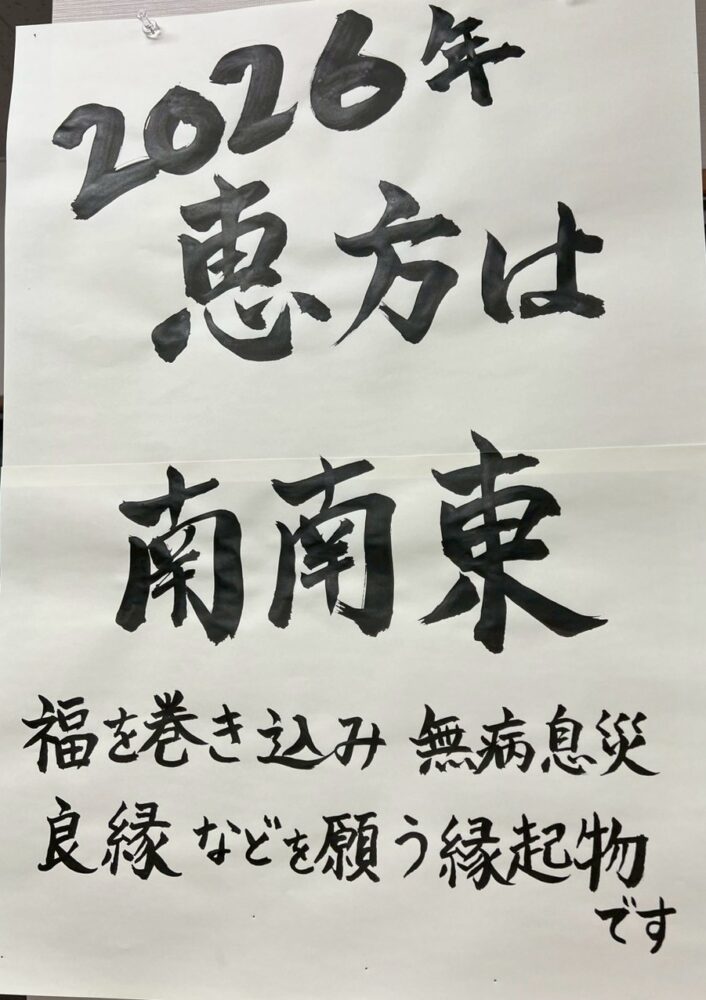 2026年
恵方は
南南東
福を巻き込み 無病息災
良縁などを願う縁起物
です